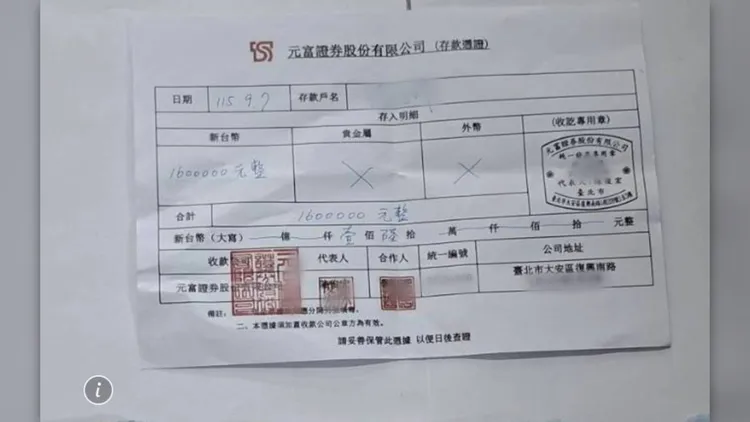 元富證券股份有限公司 (存款憑證)
日期 115.9.7 存款戶名
存入明細 (收訖專用章)
新台幣 貴金屬 外幣
1600000元整
元富證券股份有限公司
代表人:
臺北市
合計 1600000 元整
新台幣（大寫） 億 仟 壹 佰 陸 拾 萬 仟 佰 拾 元整
收款 代表人 合作人 統一編號 公司地址
元富證券股份有限公司 臺北市大安區復興南路
備註：
二、本憑據須加蓋收款公司公章方為有效。
請妥善保管此憑據 以便日後查證